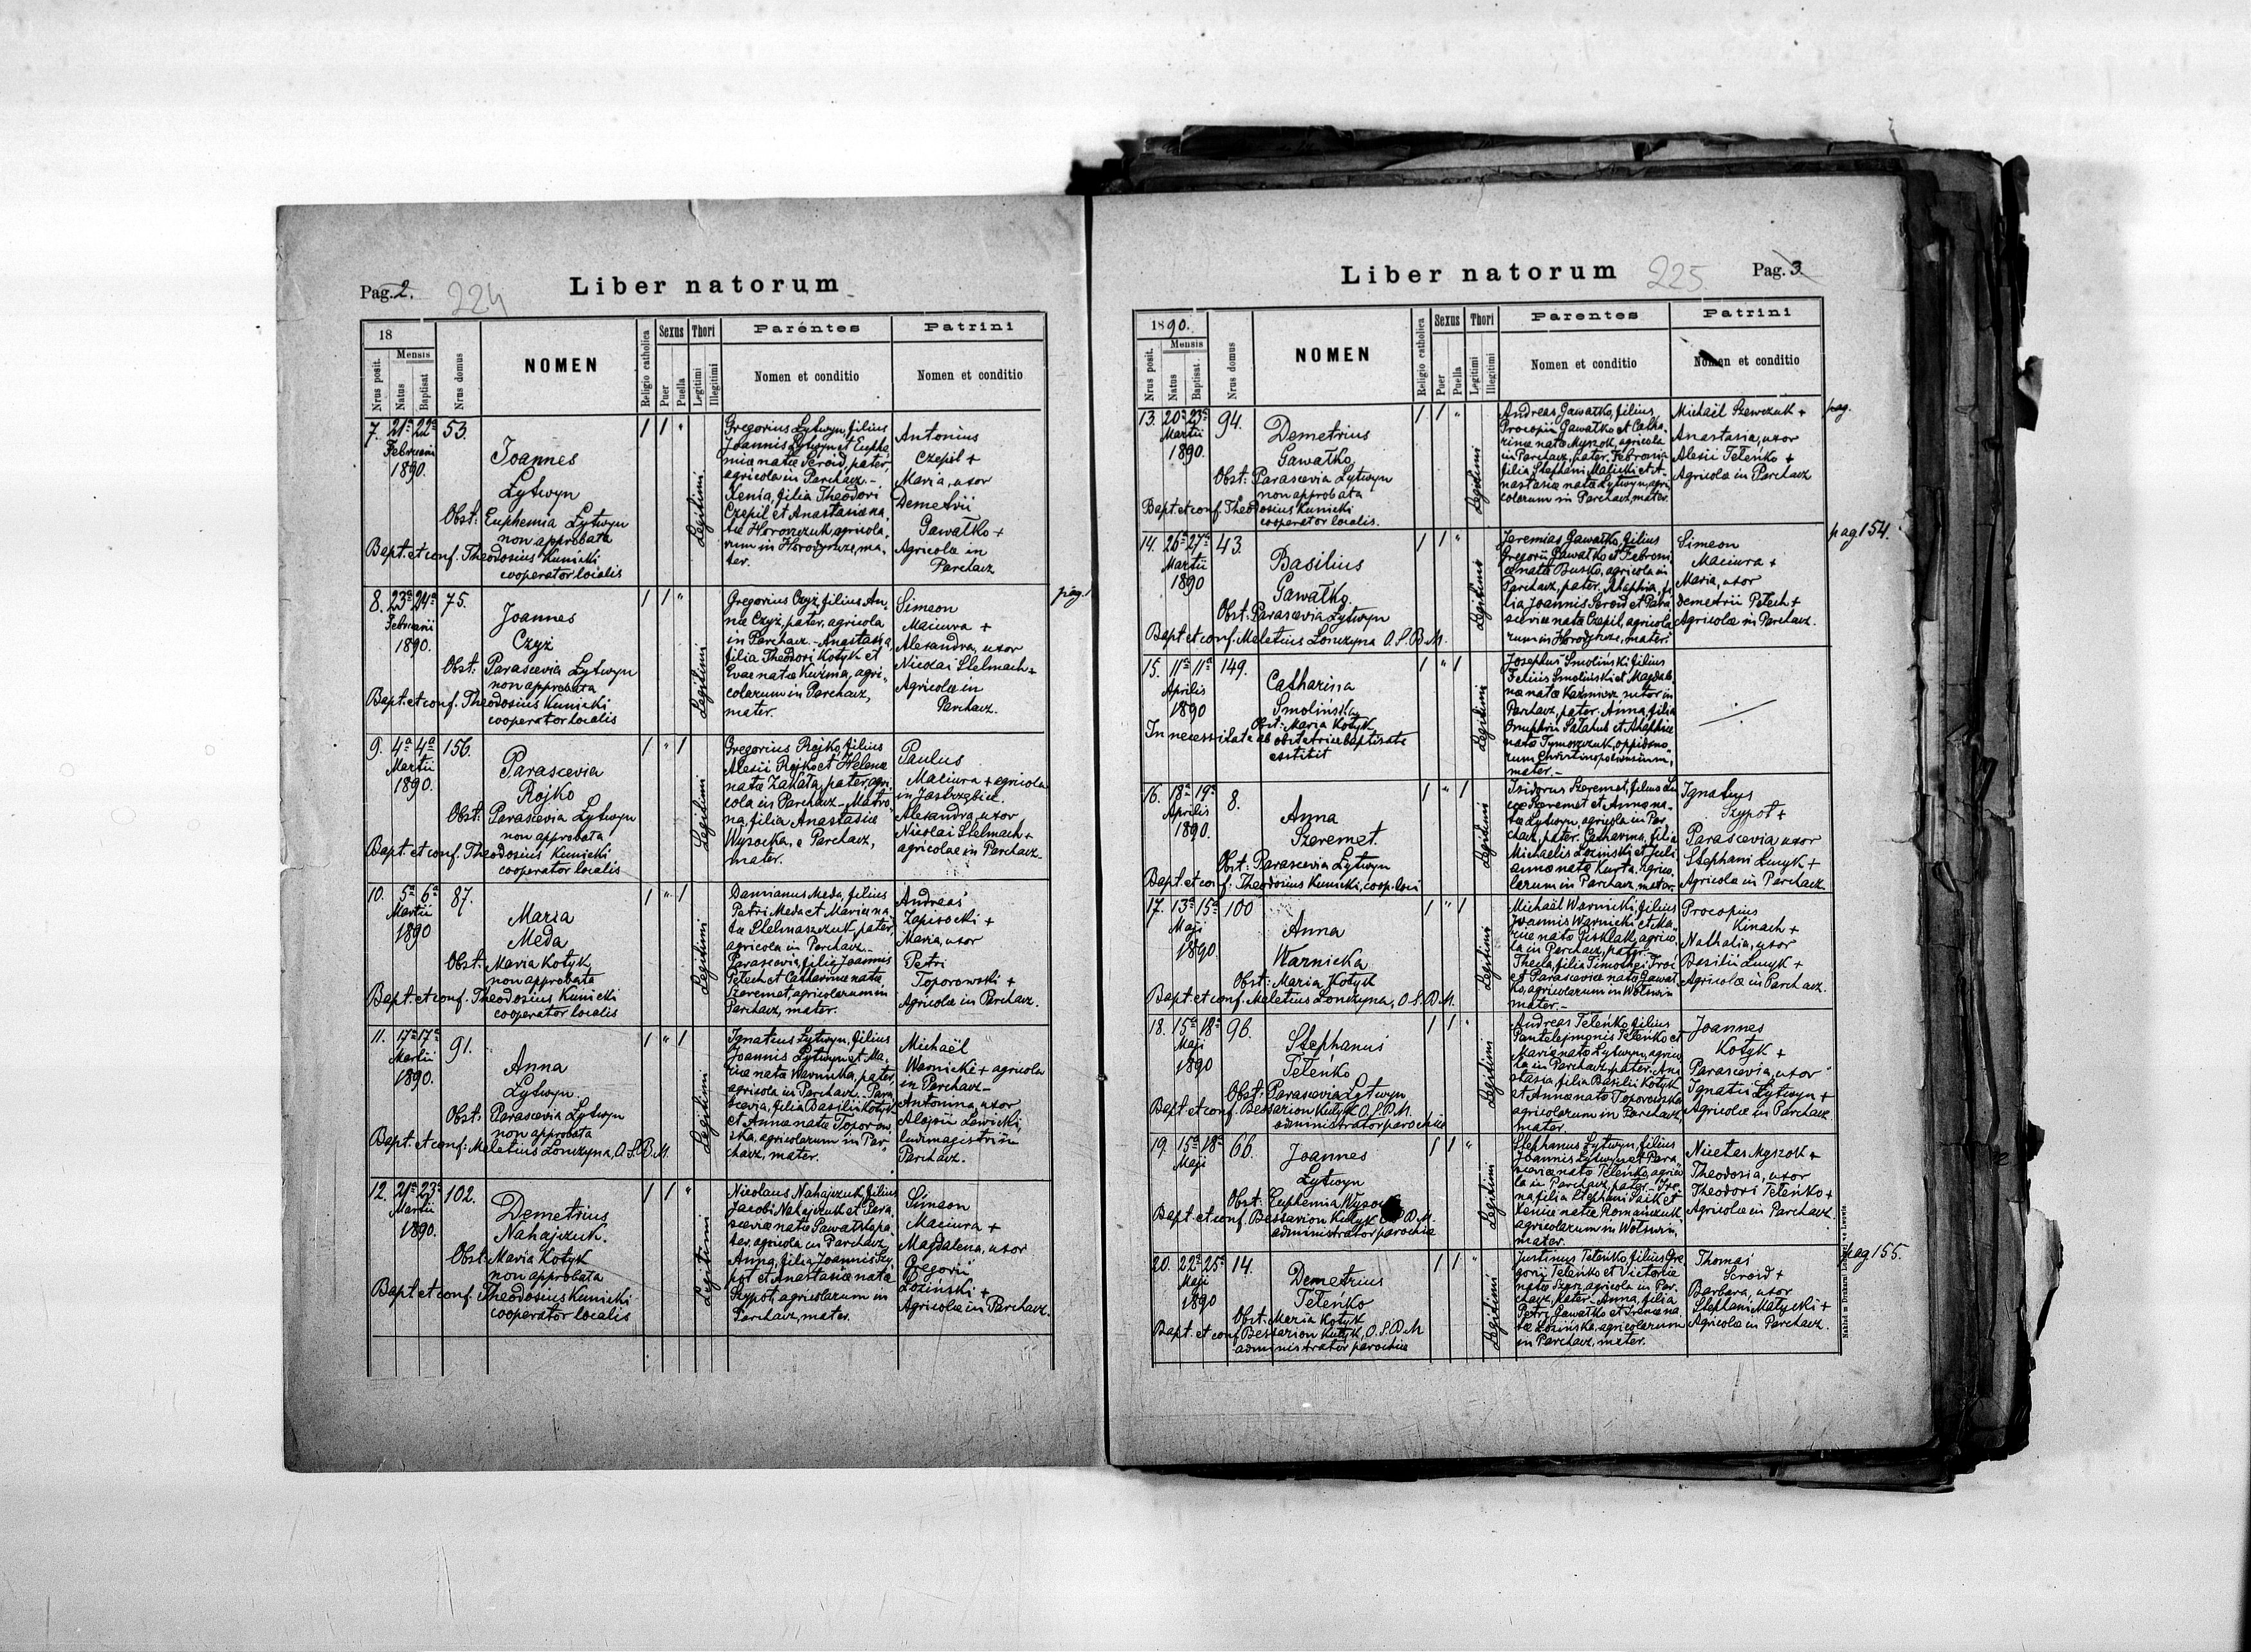 Pag. 2.
224
Liber natorum
18
Nrus posit.
Mensis
Natus
Baptisat
Nrus domus
NOMEN
Religio catholica
Sexus
Puer
Puella
Thori
Legitimi
Illegitimi
Parentes
Nomen et conditio
Patrini
Nomen et conditio
7. 21ª 22ª 53.
Februarii
1890.
Joannes
Łytwyn
Obst: Euphemia Łytwyn
non approbata
Bapt. et conf. Theodosius Kunicki
cooperator localis
Legitimi
Gregorius Łytwyn, filius
Joannis Łytwyn et Euphe-
miae natae Seroid, pater,
agricola in Parchacz.-
Xenia, filia Theodori
Czepil et Anastasiae na-
tae Horoszczuk, agricola-
rum in Horodyszcze, ma-
ter.
Antonius
Czepil +
Maria, uxor
Demetrii
Gawałko +
Agricolae in
Parchacz
8. 23ª 24ª 75.
Februarii
1890.
Joannes
Czyż
Obst: Parascevia Łytwyn
non approbata
Bapt. et conf. Theodosius Kunicki
cooperator localis
Legitimi
Gregorius Czyż, filius An-
nae Czyż, pater, agricola
in Parchacz.- Anastasia,
filia Theodori Kotyk et
Evae natae Kuźma, agri-
colarum in Parchacz,
mater.
Simeon
Maciura +
Alexandra, uxor
Nicolai Stelmach +
Agricolae in
Parchacz.
pag.
9. 4ª 4ª 156.
Martii
1890.
Parascevia
Rojko
Obst: Parascevia Łytwyn
non approbata
Bapt. et conf. Theodosius Kunicki
cooperator localis
Legitimi
Gregorius Rojko, filius
Alexii Rojko et Helenae
natae Zakała, pater, agri-
cola in Parchacz.- Matro-
na, filia Anastasiae
Wysocka, e Parchacz,
mater.
Paulus
Maciura + agricola
in Jastrzębica.
Alexandra, uxor
Nicolai Stelmach +
agricolae in Parchacz.
10. 5ª 6ª 87.
Martii
1890
Maria
Meda
Obst: Maria Kotyk
non approbata
Bapt. et conf. Theodosius Kunicki
cooperator localis
Legitimi
Damianus Meda, filius
Petri Meda et Mariae na-
tae Stelmaszczuk, pater,
agricola in Parchacz.-
Parascevia, filia Joannis
Pełech et Catharinae natae
Szeremet, agricolarum in
Parchacz, mater.
Andreas
Zapisocki +
Maria, uxor
Petri
Toporowski +
Agricolae in Parchacz.
11. 17ª 17ª 91.
Martii
1890.
Anna
Łytwyn
Obst: Parascevia Łytwyn
non approbata
Bapt. et conf. Meletius Łonczyna, O.S.B.M.
Legitimi
Ignatius Łytwyn, filius
Joannis Łytwyn et Ma-
riae natae Warnicka, pater,
agricola in Parchacz.- Para-
scevia, filia Basilii Kotyk
et Annae natae Toporow-
ska, agricolarum in Par-
chacz, mater.
Michaël
Warnicki + agricola
in Parchacz-
Antonina, uxor
Aloysii Lewicki,
ludimagistri in
Parchacz.
12. 21ª 23ª 102.
Martii
1890.
Demetrius
Nahajczuk.
Obst: Maria Kotyk
non approbata
Bapt. et conf. Theodosius Kunicki
cooperator localis
Legitimi
Nicolaus Nahajczuk, filius
Jacobi Nahajczuk et Para-
sceviae natae Sawatska, pa-
ter, agricola in Parchacz.
Anna, filia Joannis Szy-
pot et Anastasiae natae
Szypot, agricolarum in
Parchacz, mater.
Simeon
Maciura +
Magdalena, uxor
Gregorii
Łoziński +
Agricolae in Parchacz.
Liber natorum
225
Pag. 3
1890.
Nrus posit.
Mensis
Natus
Baptisat.
Nrus domus
NOMEN
Religio catholica
Sexus
Puer
Puella
Thori
Legitimi
Illegitimi
Parentes
Nomen et conditio
Patrini
Nomen et conditio
13. 20ª 23ª 94.
Martii
1890.
Demetrius
Gawałko
Obst: Parascevia Łytwyn
non approbata
Bapt. et conf. Theodosius Kunicki
cooperator localis.
Legitimi
Andreas Gawałko, filius
Procopii Gawałko et Catha-
rinae natae Myszok, agricola
in Parchacz, pater. Febronia,
filia Stephani Małycki et A-
nastasiae natae Łytwyn, agri-
colarum in Parchacz, mater.
Michaël Szewczuk +
Anastasia, uxor
Alexii Teleńko +
Agricolae in Parchacz
pag.
14. 26ª 27ª 43.
Martii
1890
Basilius
Gawałko
Obst. Parascevia Łytwyn
Bapt. et conf. Meletius Łonczyna O.S.B.M.
Legitimi
Jeremias Gawałko, filius
Gregorii Gawałko et Febroni-
ae natae Busko, agricola in
Parchacz, pater. Ahaphia, fi-
lia Joannis Seroid et Para-
sceviae natae Czepil, agricola-
rum in Horodyszcze, mater.
Simeon
Maciura +
Maria, uxor
Demetrii Pełech +
Agricolae in Parchacz.
pag 154.
15. 11ª 11ª 149.
Aprilis
1890
Catharina
Smolińska
Obst: Maria Kotyk
In necessitate ab obstetrice baptisata
exstitit
Legitimi
Josephus Smoliński, filius
Felicis Smoliński et Magdale-
nae natae Kazmierz, sutor in
Parchacz, pater. Anna, filia
Onuphrii Sałahub et Ahaphiae
natae Tymoszczuk, oppidano-
rum Christinopoliensium,
mater.-
16. 18ª 19ª 8.
Aprilis
1890.
Anna
Szeremet.
Obst: Parascevia Łytwyn
Bapt. et conf. Theodosius Kunicki, coop. loci
Legitimi
Isidorus Szeremet, filius Lu-
cae Szeremet et Annae na-
tae Łytwyn, agricola in Par-
chacz, pater. Catharina, filia
Michaelis Łoziński et Juli-
annae natae Kurta, agrico-
larum in Parchacz, mater.
Ignatius
Szypot +
Parascevia uxor
Stephani Łucyk +
Agricolae in Parchacz.
17. 13ª 15ª 100
Maji
1890.
Anna
Warnicka
Obst: Maria Kotyk
Bapt. et conf. Meletius Łonczyna, O.S.B.M.
Legitimi
Michaël Warnicki, filius
Joannis Warnicki et Ma-
riae natae Pisklak, agrico-
la in Parchacz, pater.-
Thecla, filia Timothei Troć
et Parasceviae natae Gawał-
ko, agricolarum in Wolswin
mater.-
Procopius
Kinach +
Nathalia, uxor
Basilii Łucyk +
Agricolae in Parchacz.
18. 15ª 18ª 96.
Maji
1890
Stephanus
Teleńko
Obst: Parascevia Łytwyn
Bapt. et conf. Bessarion Kułyk O.S.B.M.
administrator parochiae
Legitimi
Andreas Teleńko, filius
Pantelejmonis Teleńko et
Mariae natae Łytwyn, agrico-
la in Parchacz, pater. Ana-
stasia, filia Basilii Kotyk
et Annae natae Toporowska,
agricolarum in Parchacz,
mater.
Joannes
Kotyk +
Parascevia, uxor
Ignatii Łytwyn +
Agricolae in Parchacz.
19. 15ª 18ª 66.
Maji
Joannes
Łytwyn
Obst: Euphemia
Bapt. et conf. Bessarion Kułyk O.S.B.M.
administrator parochiae
Legitimi
Stephanus Łytwyn, filius
Joannis Łytwyn et Para-
sceviae natae Teleńko, agrico-
la in Parchacz, pater.- Ire-
na, filia Stephani Saik et
Xeniae natae Romańczuk
agricolarum in Wolswin,
mater.
Nicetas Myszok +
Theodosia, uxor
Theodori Teleńko +
Agricolae in Parchacz
20. 22ª 25ª 14.
Maji
1890
Demetrius
Teleńko
Obst: Maria Kotyk
Bapt. et conf. Bessarion Kułyk, O.S.B.M
administrator parochiae
Legitimi
Justinus Teleńko, filius Gre-
gorii Teleńko et Victoriae
natae Szysz, agricola in Par-
chacz, pater.- Anna, filia
Petri Gawałko et Irenae na-
tae Łozińska, agricolarum
in Parchacz, mater.
Thomas
Seroid +
Barbara, uxor
Stephani Małycki +
Agricolae in Parchacz.
pag 155.